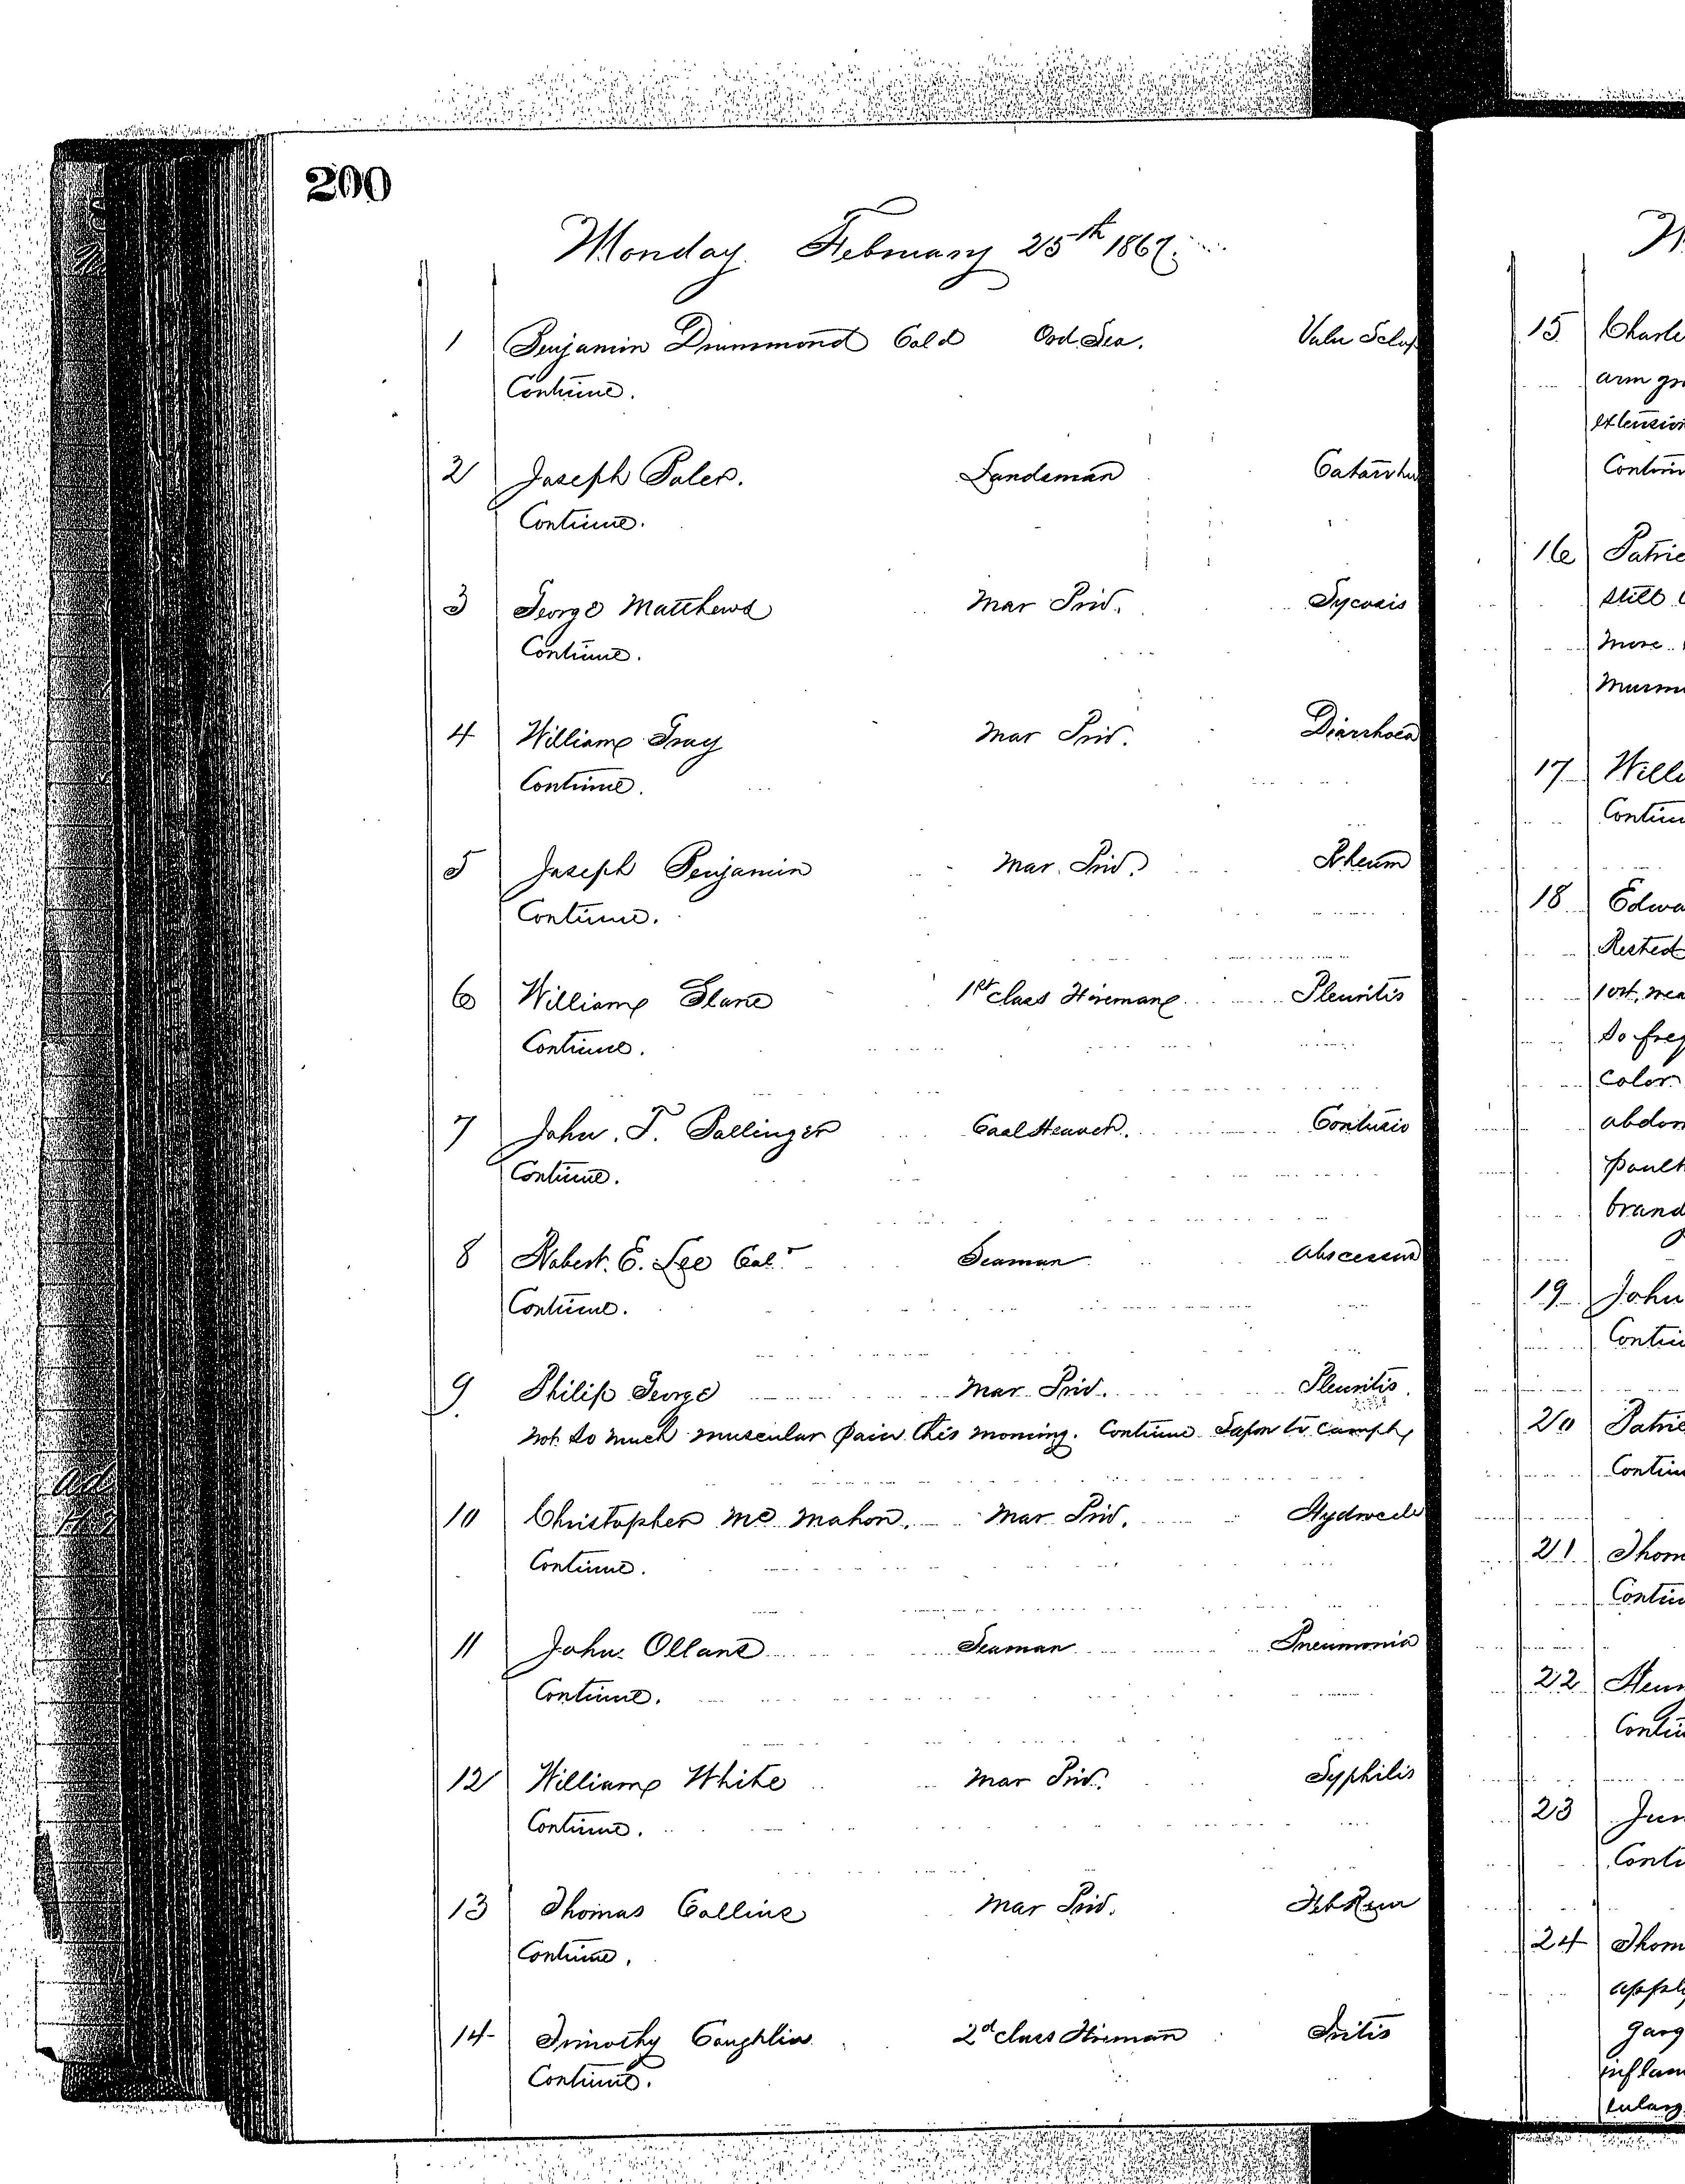 200
Monday February 25th 1867.
1 Benjamin Drummond Cold Ord. Sea. Vuln Sclop
Continue.
2 Joseph Paler. Landsman Catarrhu
Continue.
3 George Matthews Mar Priv. Sycosis
Continue.
4 William Gray Mar Priv. Diarrhoea
Continue.
5 Joseph Benjamin Mar. Priv. Rheum
Continue.
6 William Slane 1st class Fireman Pleuritis
Continue.
7 John. T. Ballinger Coal Heaver. Contusio
Continue.
8 Robert. E. Lee Col. Seaman Abscessus
Continue.
9 Philip George Mar Priv. Pleuritis.
Not so much muscular pain this morning. Continue Sapon to camph
10 Christopher Mc Mahon. Mar Priv. Hydrocele
Continue.
11 John. Ollans Seaman Pneumonia
Continue.
12 William White Mar Priv. Syphilis
Continue.
13 Thomas Collins Mar Priv. Feb Rem
Continue.
14 Timothy Coughlin 2d class Fireman Iritis
Continue.
15 Charle
arm gr
extension
Contin
16 Patric
still
more
murmu
17 Willi
Continu
18 Edwa
Rested
so freq
color
abdom
poult
brand
19 John
Contin
20 Patric
Contin
21 Thom
Contin
22 Henr
Contin
23
Conti
24 Thom
apply
garg
inflam